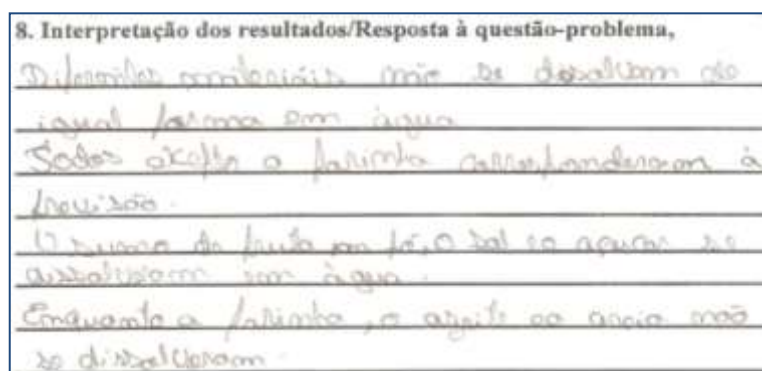 8. Interpretação dos resultados/Resposta à questão-problema,
Diferentes materiáis não se dissolvem de
igual forma em àgua
Todos exepto a farinha corresponderam à
previsão.
O sumo de fruta em pó, o sal eo açucar se
dissolveram em àgua.
Enquanto a farinha, o azeite ea areia não
se dissolveram.